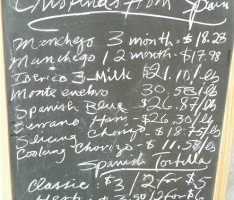 Christinas from Spain
Manchego 3 month - $18.28
Manchego 12 month - $17.98
Iberico 3-Milk $21.10/lb
Monte enebro 30.58/lb
Spanish Blue - $26.87/lb
Serrano Ham - $26.30/lb
Slicing Chorizo - $18.75/lb
Cooking Chorizo - $11.50/lb
Spanish Tortilla
Classic: $3 / 2 for $5
2 for $6